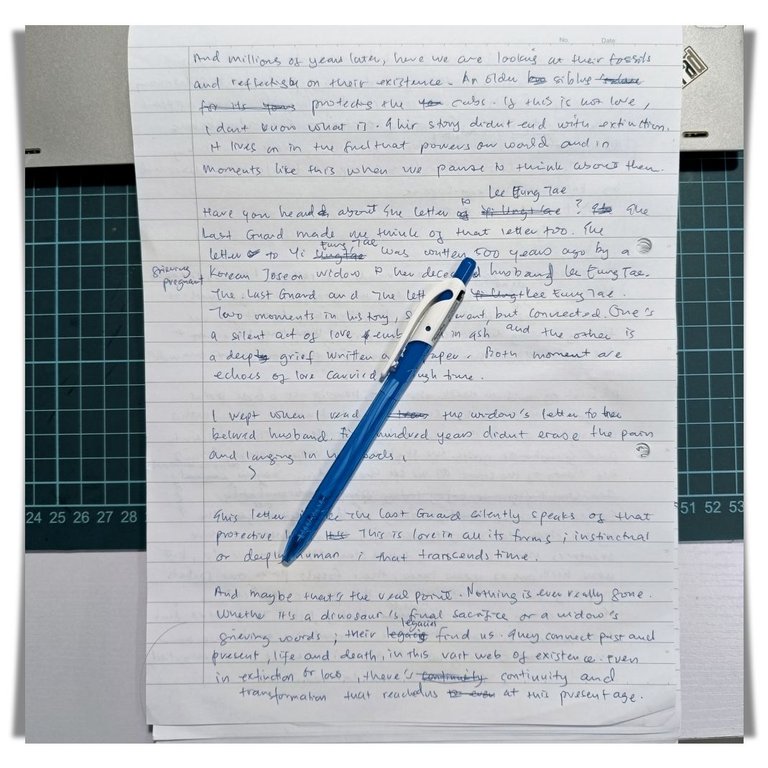 No. Date
And millions of years later, here we are looking at their fossils
and reflecting on their existence. An older sibling
for its protecting the cubs. If this is not love,
I dont know what is. Their story didnt end with extinction.
It lives on in the fuel that powers our world and in
moments like this when we pause to think about them.
Lee Eung Tae
Have you heard about the letter to ? The
Last Guard made me think of that letter too. The
Eung Tae
letter to Yi was written 500 years ago by a
grieving
pregnant
Korean Joseon widow to her husband Lee Eung Tae.
The Last Guard and The Lee Eung Tae.
Two moments in history, but connected. One's
a silent act of love in ash and the other is
a deep grief written Both moment are
echoes of love time.
I wept when I read the widow's letter to her
beloved husband. hundred years didnt erase the pain
and longing in
This letter the Last Guard silently speaks of that
protective This is love in all its forms ; instinctual
or deeply human ; that transcends time.
And maybe that's the real point. Nothing is ever really gone.
Whether it's a dinosaur's final sacrifice or a widow's
legacies
grieving words ; their find us. They connect past and
present, life and death, in this vast web of existence. even
in extinction or loss, there's continuity and
transformation that reached us at this present age.
24 25 26 27 28
51 52 53